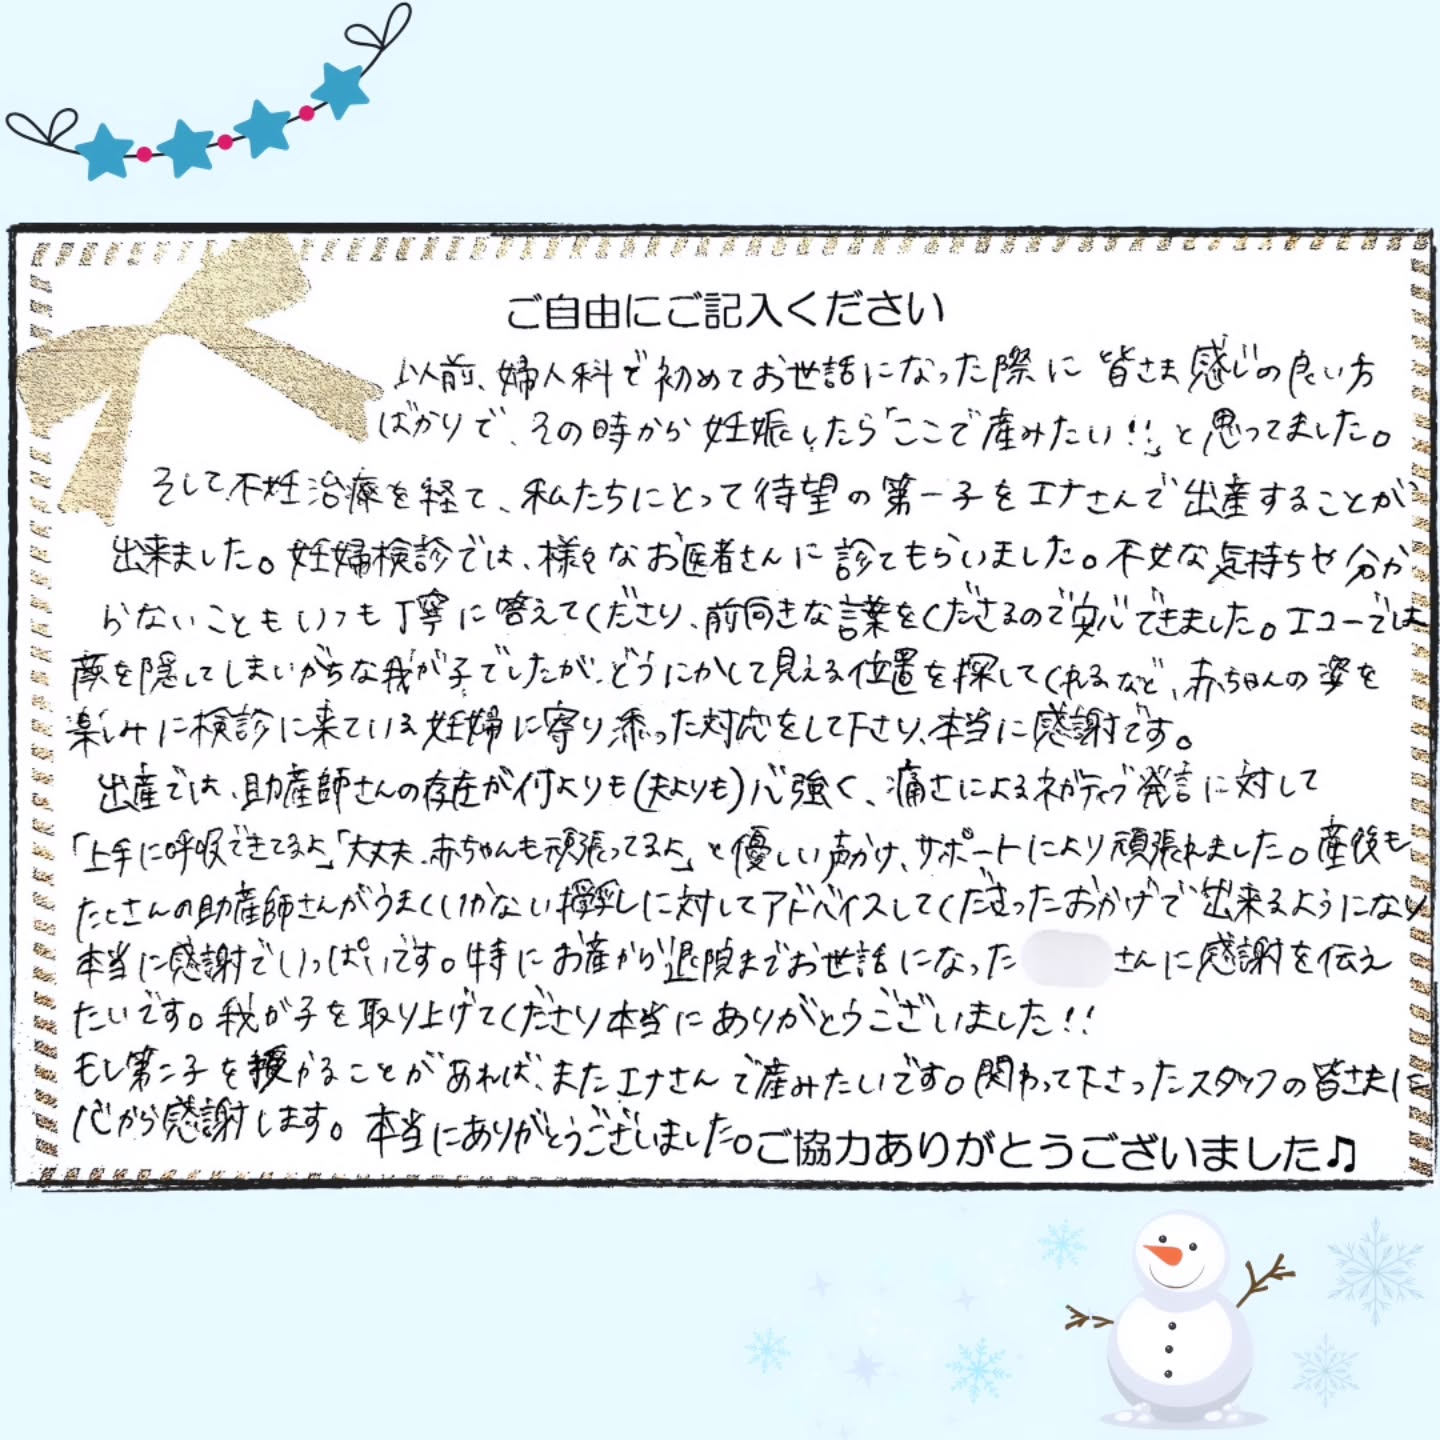 ご自由にご記入ください
以前、婦人科で初めてお世話になった際に皆さま感じの良い方
ばかりで、その時から妊娠したら「ここで産みたい!!」と思ってました。
そして不妊治療を経て、私たちにとって待望の第一子をエナさんで出産することが
出来ました。妊婦検診では、様々なお医者さんに診てもらいました。不安な気持ちや分か
らないこともいつも丁寧に答えてくださり、前向きな言葉をくださるので安心できました。エコーでは
顔を隠してしまいがちな我が子でしたが、どうにかして見える位置を探してくれるなど、赤ちゃんの姿を
楽しみに検診に来ている妊婦に寄り添った対応をして下さり、本当に感謝です。
出産では、助産師さんの存在が何よりも(夫よりも)心強く、痛さによるネガティブ発言に対して
「上手に呼吸できてるよ」「大丈夫、赤ちゃんも頑張ってるよ」と優しい声かけ、サポートにより頑張れました。産後も
たくさんの助産師さんがうまくいかない授乳に対してアドバイスしてくださったおかげで出来るようになり
本当に感謝でいっぱいです。特にお産から退院までお世話になった さんに感謝を伝え
たいです。我が子を取り上げてくださり本当にありがとうございました!!
もし第二子を授かることがあれば、またエナさんで産みたいです。関わって下さったスタッフの皆さまに
心から感謝します。本当にありがとうございました。
ご協力ありがとうございました♫